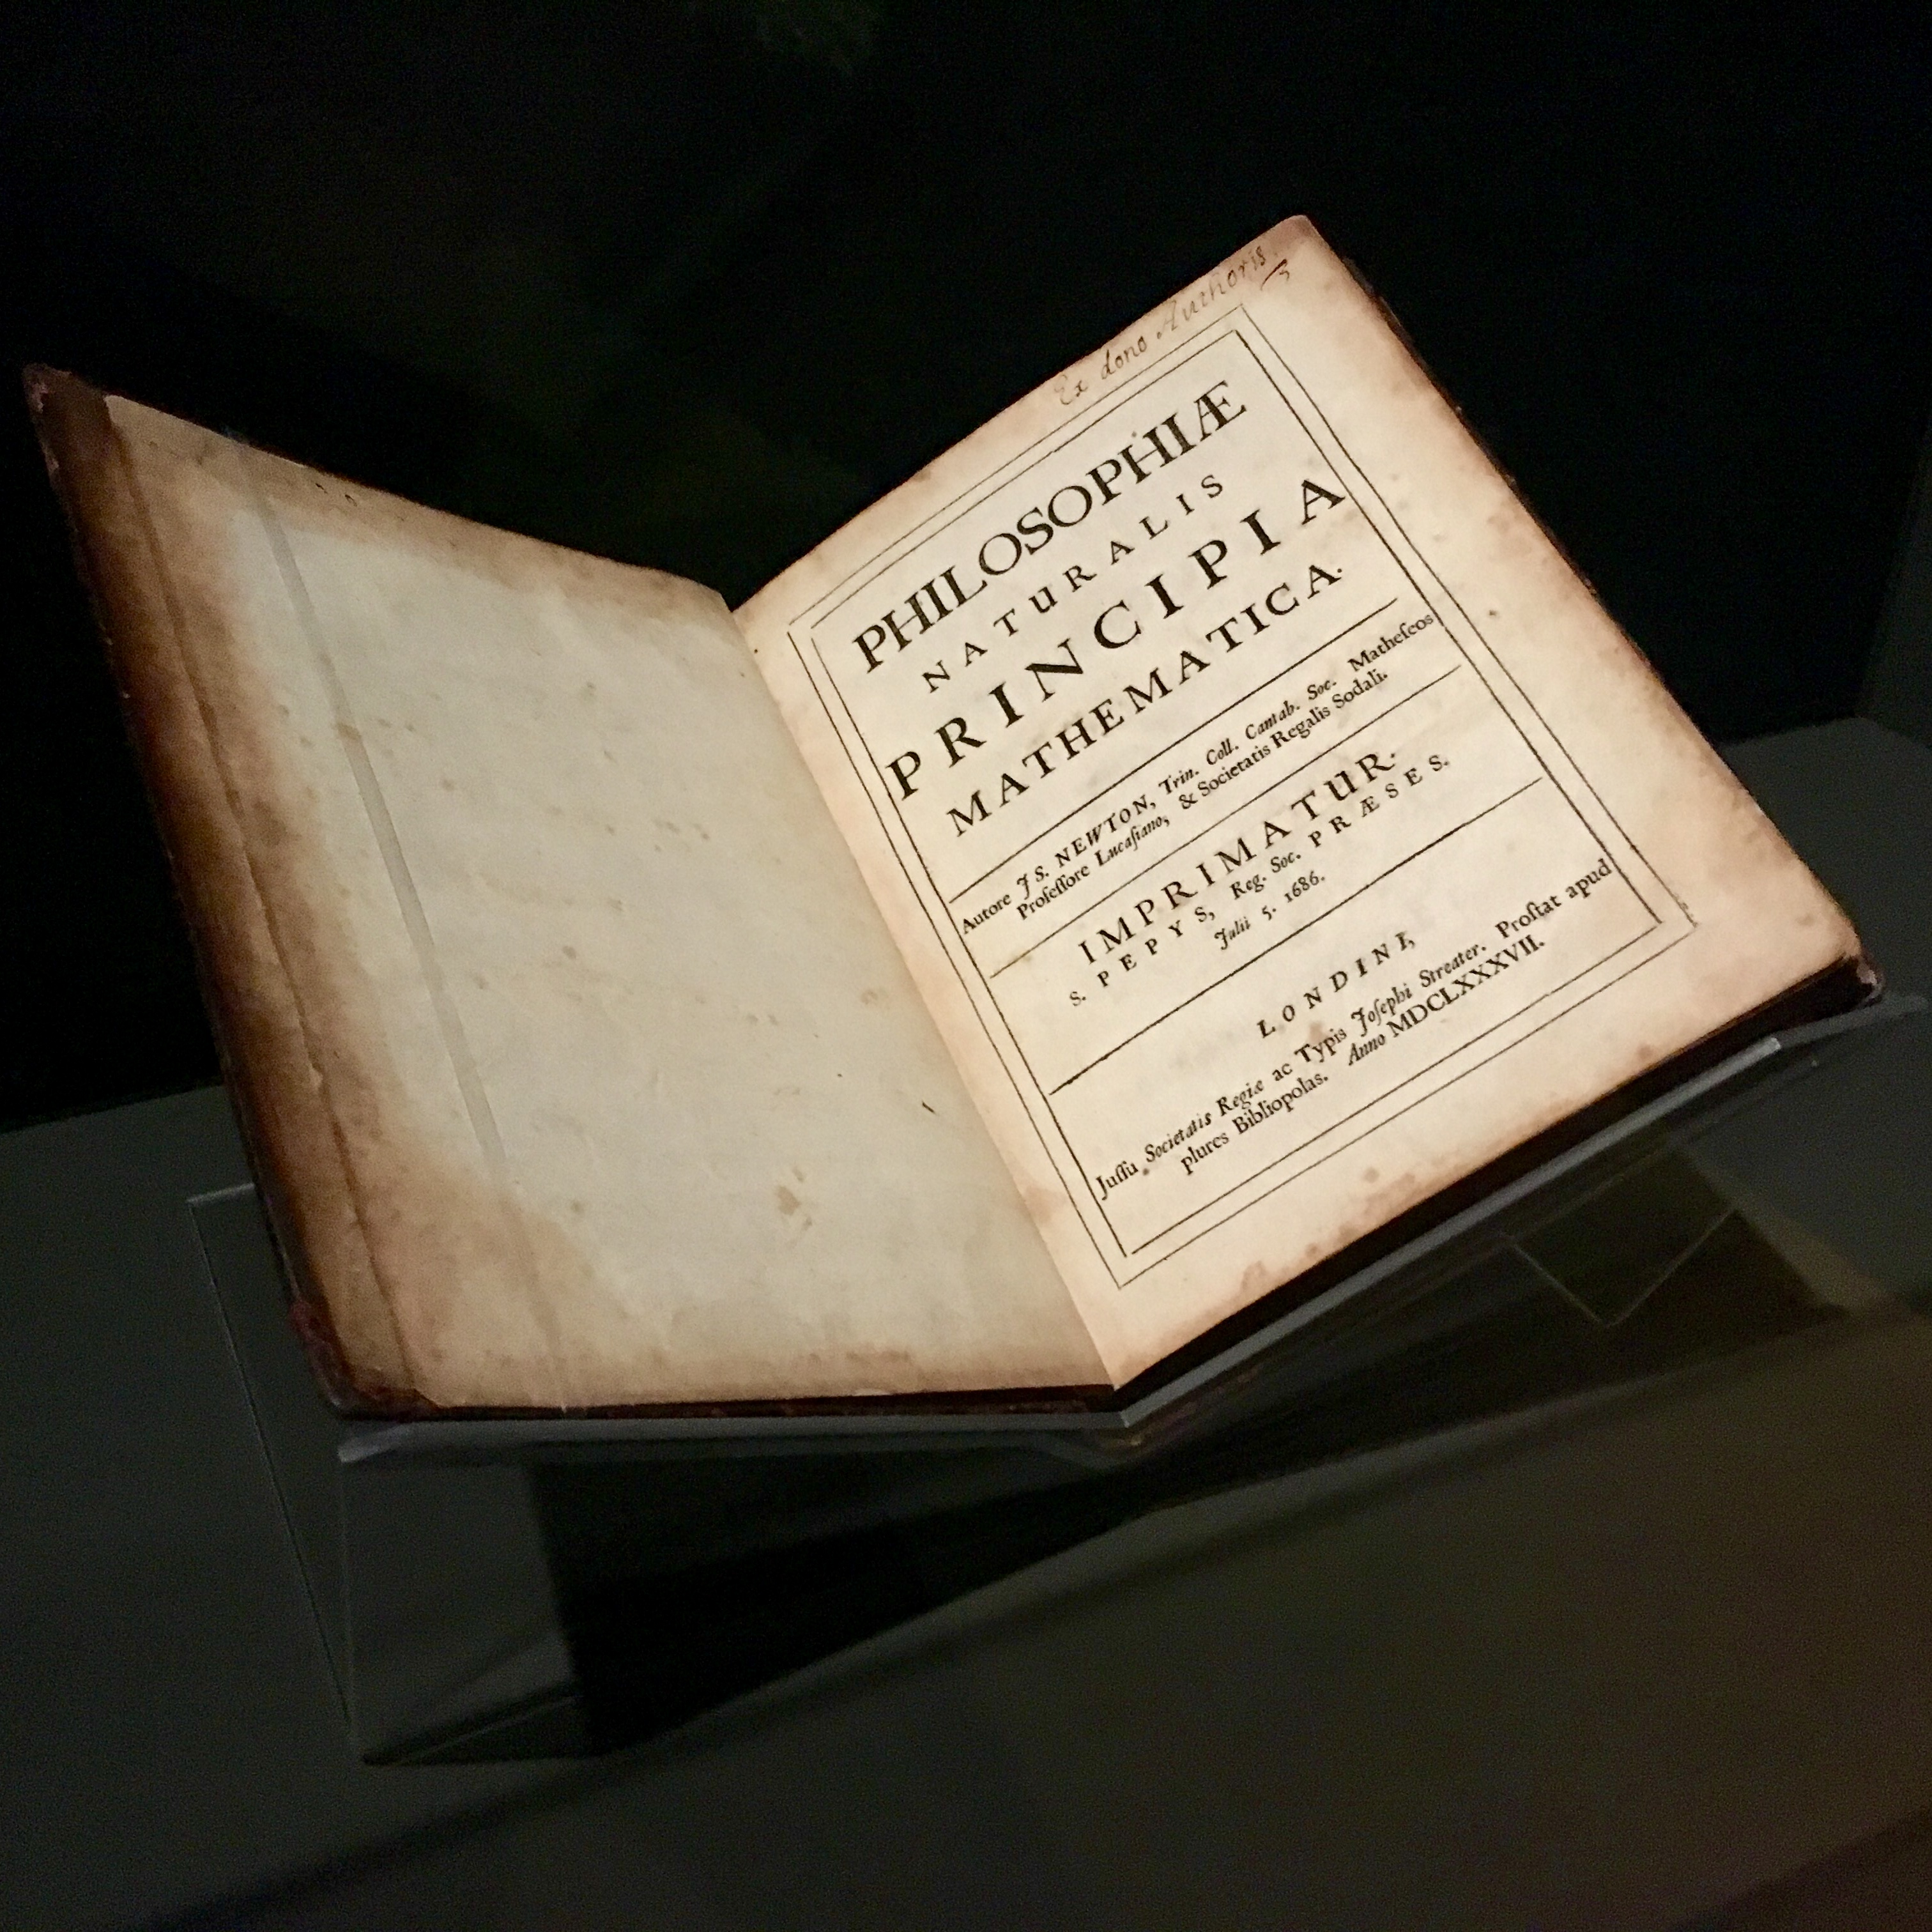 Ex dono Authoris
PHILOSOPHIÆ
NATURALIS
PRINCIPIA
MATHEMATICA.
Autore JS. NEWTON, Trin. Coll. Cantab. Soc. Matheſeos
Profeſſore Lucaſiano, & Societatis Regalis Sodali.
IMPRIMATUR.
S. PEPYS, Reg. Soc. PRÆSES.
Julii 5. 1686.
LONDINI,
Juſſu Societatis Regiæ ac Typis Joſephi Streater. Proſtat apud
plures Bibliopolas. Anno MDCLXXXVII.